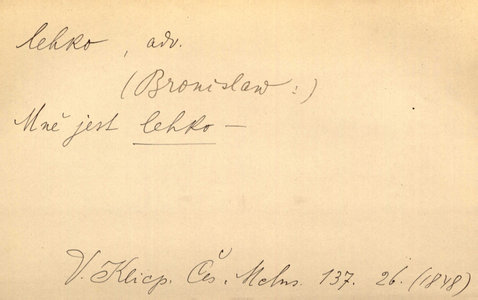 lehko, adv.
(Bronislaw:)
Mně jest lehko –
V. Klicp. Čes. Melns. 137. 26. (1848)